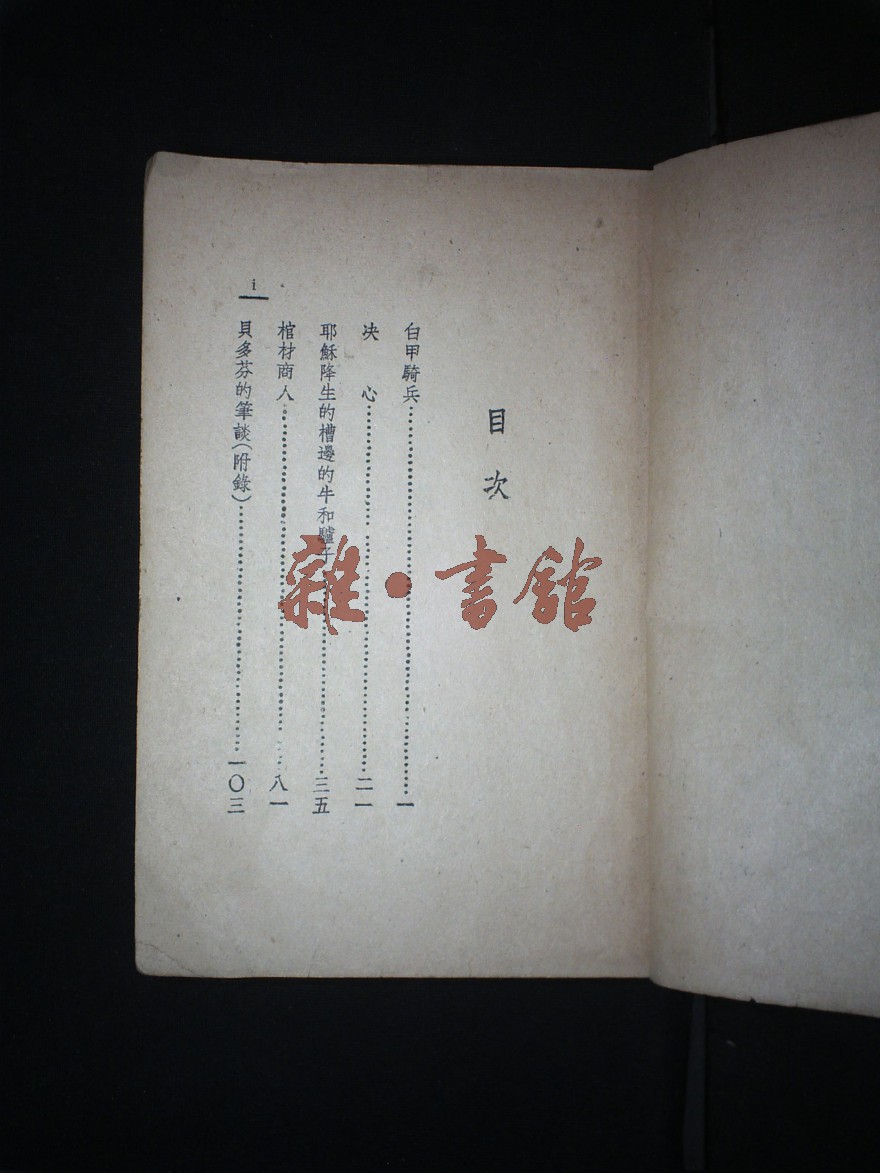 目次
白甲騎兵……………一
决　心……………二一
耶穌降生的槽邊的牛和驢子……………三五
棺材商人……………八一
貝多芬的筆談(附錄)……………一〇三
i
雜·書館